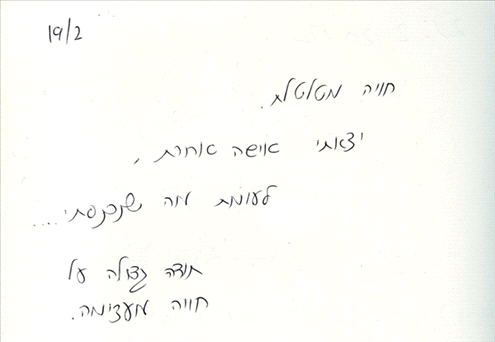 19/2
חוויה מטלטלת.
יצאתי אישה אחרת,
לעומת מה שנכנסתי....
תודה גדולה על
חוויה מעצימה.